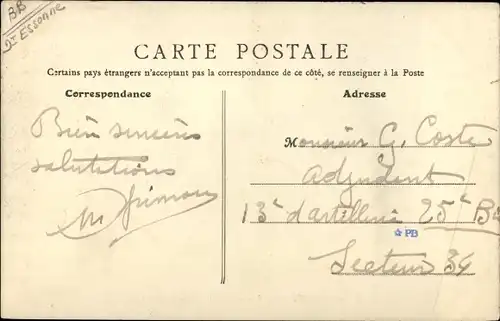 BB
Dt Essonne
CARTE POSTALE
Certains pays étrangers n'acceptant pas la correspondance de ce côté, se renseigner à la Poste
Correspondance
Adresse
Bien sincères
salutations
M
Monsieur G. Coste
Adjudant
13e d'artillerie 25e Bie
☆PB
Secteur 34